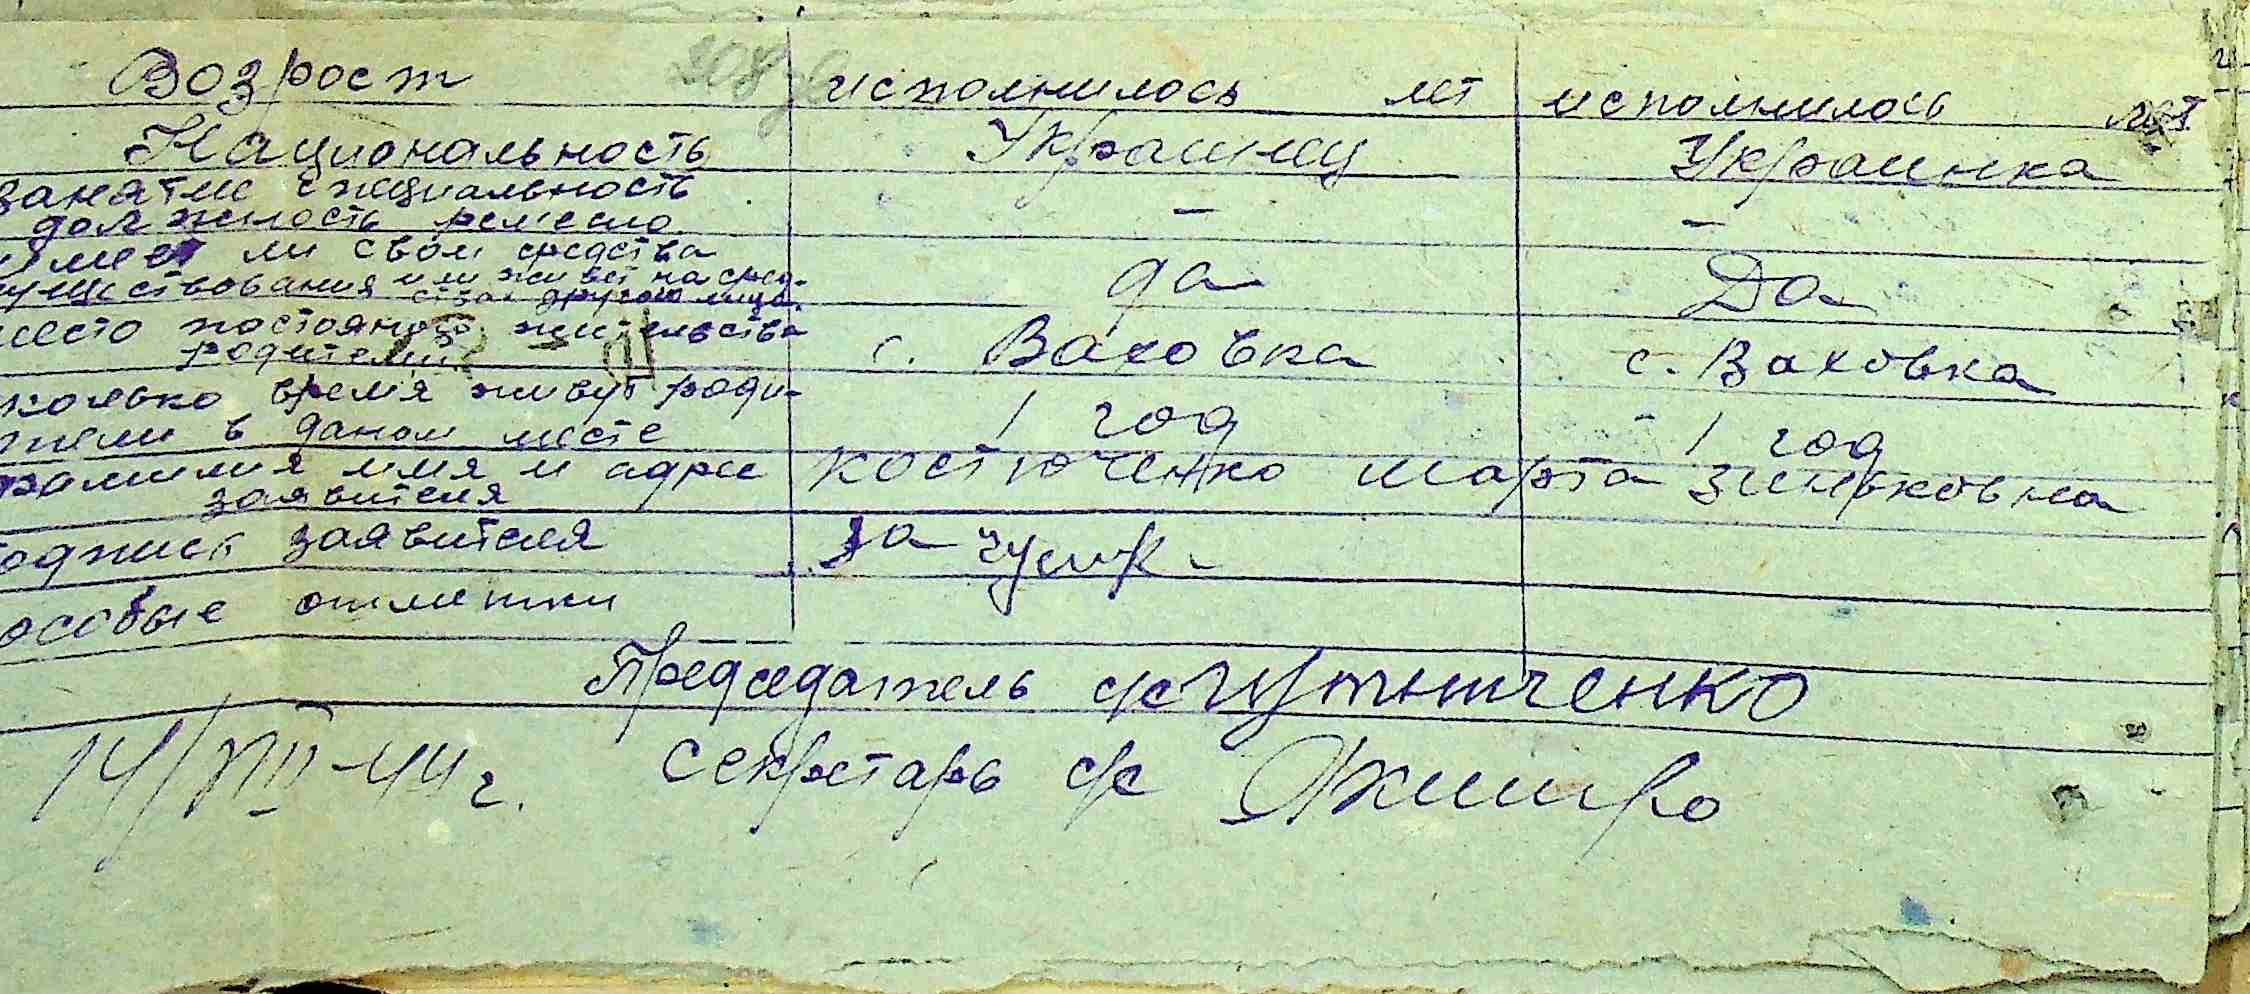 Возрост исполнилось лет исполнилось лет
Национальность Украинец Украинка
занятие специальность
должность ремесло – –
имеет ли свои средства
существования или живет на сред- да Да
ствах другого лица
место постояного жительства
родителей с.Ваховка с. Ваховка
колько время живут роди-
тели в даном месте 1 год 1 год
фамилия имя и адрес Костюченко Марта Зиньковна
заявителя
подпись заявителя за
особые отметки
Председатель с/с
14/XII-44 г. секретарь с/с